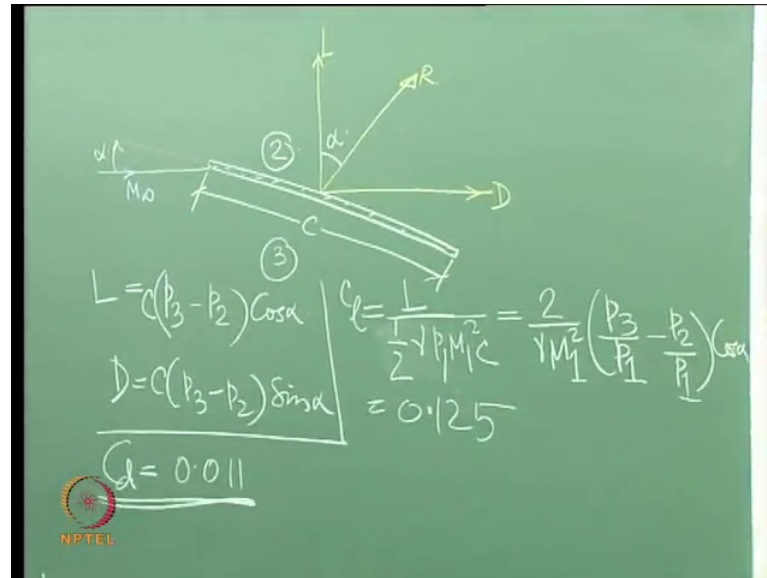 L
R
α
②
α
M∞
D
C
③
L = C(P₃ - P₂) Cosα
D = C(P₃ - P₂) Sinα
C_d = 0.011
C_l = L / (1/2 γ P₁ M₁² C) = 2 / (γ M₁²) (P₃/P₁ - P₂/P₁) Cosα
= 0.125
NPTEL